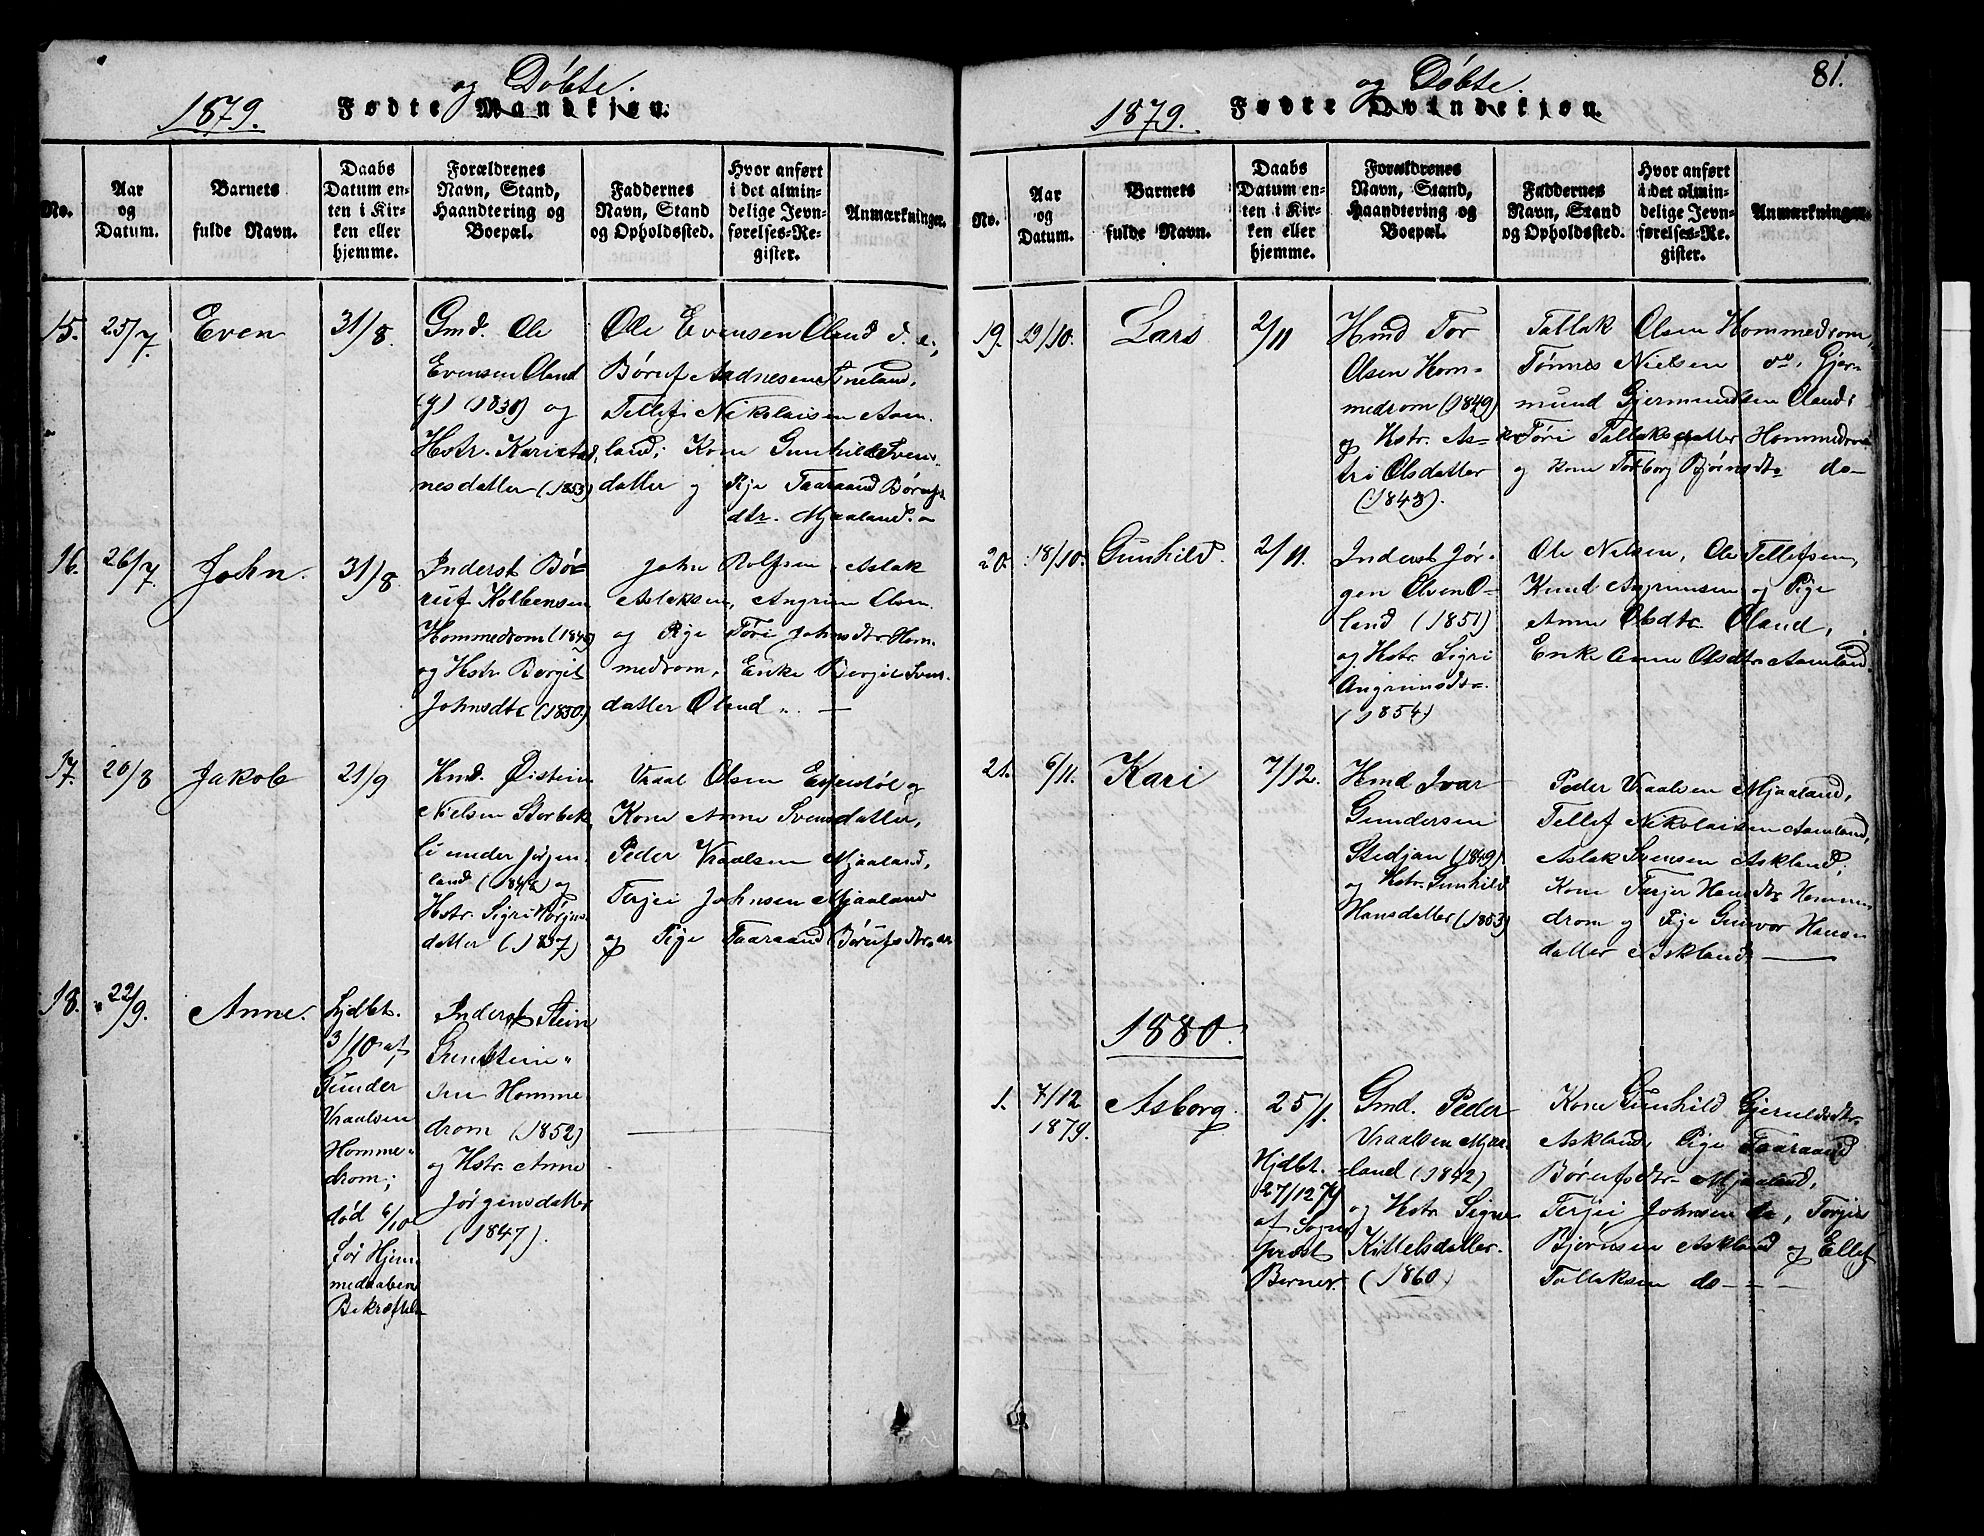 og Døbte.
1879. Fødte Mandkjøn.
No.
Aar
og
Datum.
Barnets
fulde Navn.
Daabs
Datum en-
ten i Kir-
ken eller
hjemme.
Forældrenes
Navn, Stand,
Haandtering og
Boepæl.
Faddernes
Navn, Stand
og Opholdssted.
Hvor anført
i det almin-
delige Jevn-
førelses-Re-
gister.
Anmærkninger.
15. 25/7. Even 31/8.
Gmd. Ole
Evensen Øland
(1838) og
Hstr. Kari
nesdatter (1853)
Ole Evensen Øland d. e.,
Børuf Aadnesen Fineland,
Tellef Nikolaisen Aam-
land; Kone Gunhild Sven-
datter og Pige Taaraand Børufs
dtr. Mjaaland.
16. 26/7. John. 31/8.
Inderst Bø-
ruf Kolbensen
Hommedrom
og Hstr. Bergit
Johnsdtr (1850)
John Rolfsen, Aslak
Aslaksen, Angrim Olsen
og Pige Tøri Johnsdtr Hom-
medrom, Enke Bergit Sven-
datter Øland.
17. 20/8 Jakob 21/9
Hmd. Øistein
Nielsen Storbek
li under Jørjen-
land og
Hstr. Sigri
datter (1857)
Vraal Olsen Eppestøl og
Kone Anne Svensdatter,
Peder Vraalsen Mjaaland,
Terjei Johnsen Mjaaland
og Pige Taaraand Børufsdtr
18. 22/9. Anne.
Hjdbt.
3/10 af
Gunder
Vraalsen
Homme-
drom;
død 6/10
før Hjem-
medaabens
Bekræftelse
Inderst Stein
sen Homme
drom (1852)
og Hstr. Anne
Jørgensdatter
(1847).
og Døbte. 81.
1879. Fødte Qvindekjøn.
No.
Aar
og
Datum.
Barnets
fulde Navn.
Daabs
Datum en-
ten i Kir-
ken eller
hjemme.
Forældrenes
Navn, Stand,
Haandtering og
Boepæl.
Faddernes
Navn, Stand
og Opholdssted.
Hvor anført
i det almin-
delige Jevn-
førelses-Re-
gister.
Anmærkninger.
19. 19/10. Lars 2/11
Hmd Tor
Olsen Hom-
medrom (1849)
og Hstr. As-
tri Olsdatter
(1843).
Tallak Olsen Hommedrom,
Tønnes Nielsen do, Gjer-
mund Gjermundsen Øland;
Tøri Tallaksdatter Hommedrom
og Kone Torborg Bjørnsdtr do-
20. 18/10. Gunhild. 2/11.
Inderst Jør-
gen Olsen Ø-
land (1851)
og Hstr. Sigri
Angrimsdtr.
(1854)
Ole Nelsen, Ole Tellefsen,
Knud Asgrimsen og Pige
Anne Olsdtr. Øland,
Enke Anne Olsdtr Aamland.
21. 6/11. Kari 7/12.
Hmd Ivar
Gundersen
Stedjan (1849)
og Hstr. Gunhild
Hansdatter (1853)
Peder Vraalsen Mjaaland,
Tellef Nikolaisen Aamland,
Aslak Svensen Askland;
Kone Tarjer Hansdtr Homme
drom og Pige Gunvor Hans-
datter Askland
1880.
1. 7/12
1879. Asborg. 25/1.
Hjdbt.
27/12 79
af Sogne
præst
Berner.
Gmd. Peder
Vraalsen Mjaa-
land (1842)
og Hstr. Signe
Kittelsdatter.
(1860)
Kone Gunhild Gjeruldsdtr.
Askland, Pige Taaraand
Børufsdtr. Mjaaland,
Terjei Johnsen do, Torjus
Bjørnsen Askland og Ellef
Tallaksen do- - -